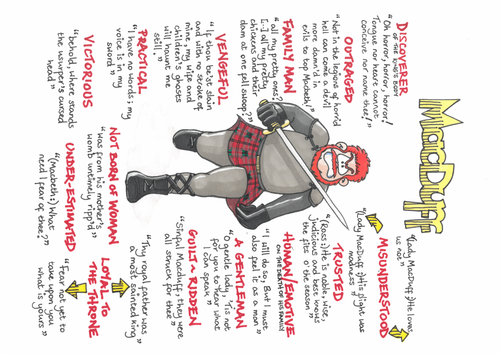 MacDuff
DISCOVERER
OF THE KING'S BODY
"Oh horror, horror, horror!
Tongue nor heart cannot
conceive nor name thee!"
OUTRAGED
"Not in the legions of horrid
hell can come a devil
more damn'd in
evils to top Macbeth!"
FAMILY MAN
"all my pretty ones?
[...] all my pretty
chickens and their
dam at one fell swoop?"
VENGEFUL
"If thou be'st slain
and with no stroke of
mine, my wife and
children's ghosts
will haunt me
still."
PRACTICAL
"I have no words; my
voice is in my
sword"
VICTORIOUS
"behold, where stands
the usurper's cursed
head"
"(Lady MacDuff) He loves
us not"
MISUNDERSTOOD
"(Lady MacDuff) His flight was
madness"
TRUSTED
"(Ross) He is noble, wise,
judicious and best knows
the fits o' the season"
HUMAN/EMOTIVE
ON THE DEATH OF HIS FAMILY
"I will do so, But I must
also feel it as a man"
A GENTLEMAN
"O gentle lady, 'tis not
for you to hear what
I can speak"
GUILT-RIDDEN
"Sinful MacDuff, they were
all struck for thee"
LOYAL TO
THE THRONE
"Thy royal father was
a most sainted king"
"Fear not yet to
take upon you
what is yours"
NOT BORN OF WOMAN
"was from his mother's
womb untimely ripp'd"
UNDER-ESTIMATED
"(Macbeth:) What
need I fear of thee?"